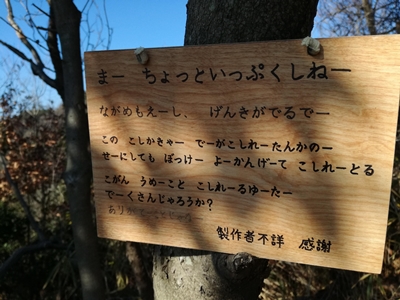 まー ちょっといっぷくしねー
ながめもえーし、 げんきがでるでー
この こしかきゃー でーがこしれーたんかのー
せーにしても ぼっけー よーかんげーて こしれーとる
こがん うめーこと こしれーるゆーたー
でーくさんじゃろうか?
製作者不詳 感謝